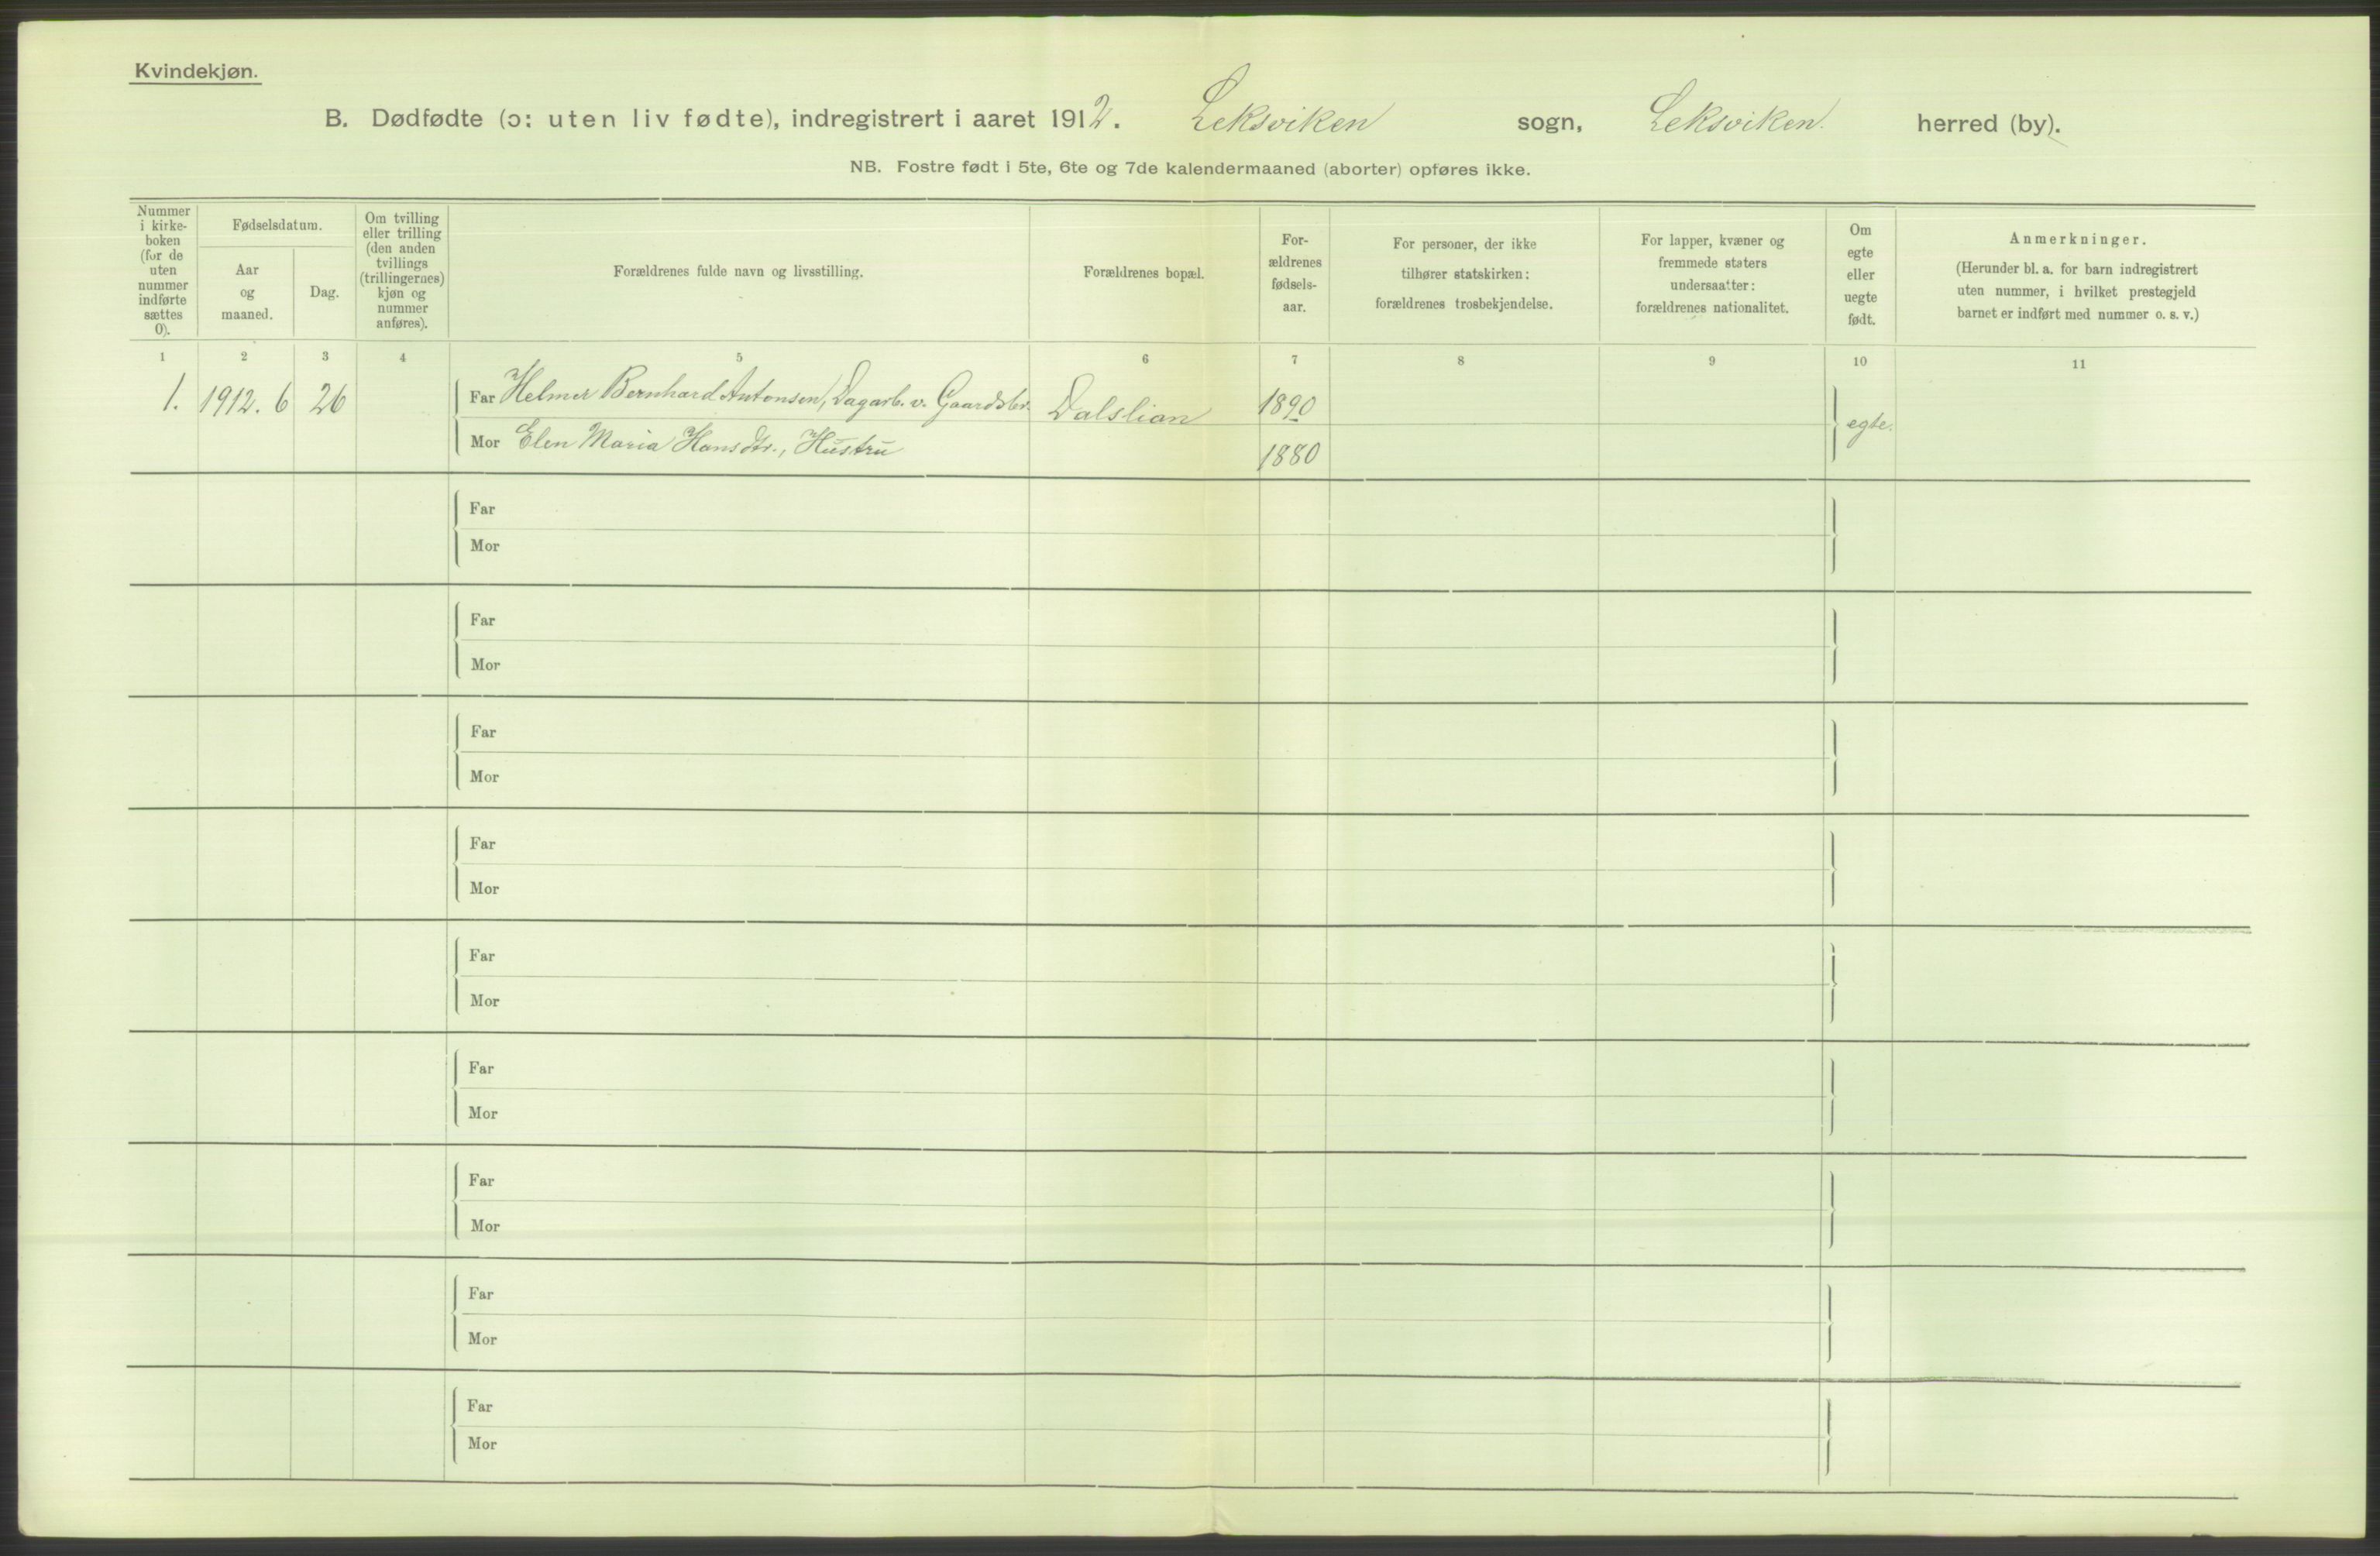 Kvindekjøn.
B. Dødfødte (ɔ: uten liv fødte), indregistrert i aaret 1912. Leksviken sogn, Leksviken. herred (by).
NB. Fostre født i 5te, 6te og 7de kalendermaaned (aborter) opføres ikke.
Nummer
i kirke-
boken
(for de
uten
nummer
indførte
sættes
0).
Fødselsdatum.
Aar
og
maaned.
Dag.
Om tvilling
eller trilling
(den anden
tvillings
(trillingernes)
kjøn og
nummer
anføres).
Forældrenes fulde navn og livsstilling.
Forældrenes bopæl.
For-
ældrenes
fødsels-
aar.
For personer, der ikke
tilhører statskirken:
forældrenes trosbekjendelse.
For lapper, kvæner og
fremmede staters
undersaatter:
forældrenes nationalitet.
Om
egte
eller
uegte
født.
Anmerkninger.
(Herunder bl. a. for barn indregistrert
uten nummer, i hvilket prestegjeld
barnet er indført med nummer o. s. v.)
1 2 3 4 5 6 7 8 9 10 11
1. 1912. 6 26 Far Helmer Bernhard Antonsen, Dagarb. v. Gaardsbr. Dalslian 1890 egte.
Mor Elen Maria Hansdtr., Hustru 1880
Far
Mor
Far
Mor
Far
Mor
Far
Mor
Far
Mor
Far
Mor
Far
Mor
Far
Mor
Far
Mor